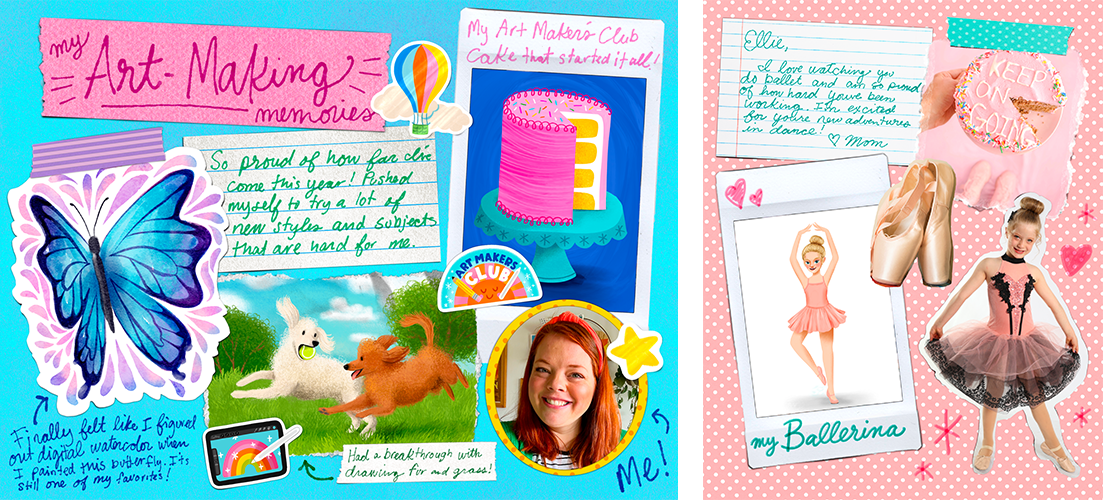 my
Art-Making
memories
My Art Maker's Club
Cake that started it all!
So proud of how far I've
come this year! Pushed
myself to try a lot of
new styles and subjects
that are hard for me.
ART MAKERS
CLUB
Finally felt like I figured
out digital watercolor when
I painted this butterfly. It's
still one of my favorites!
Had a breakthrough with
drawing fur and grass!
Me!
Ellie,
I love watching you
do ballet and am so proud
of how hard youve been
working. I'm excited
for you're new adventures
in dance!
♡ Mom
KEEP
ON
GOING
my Ballerina